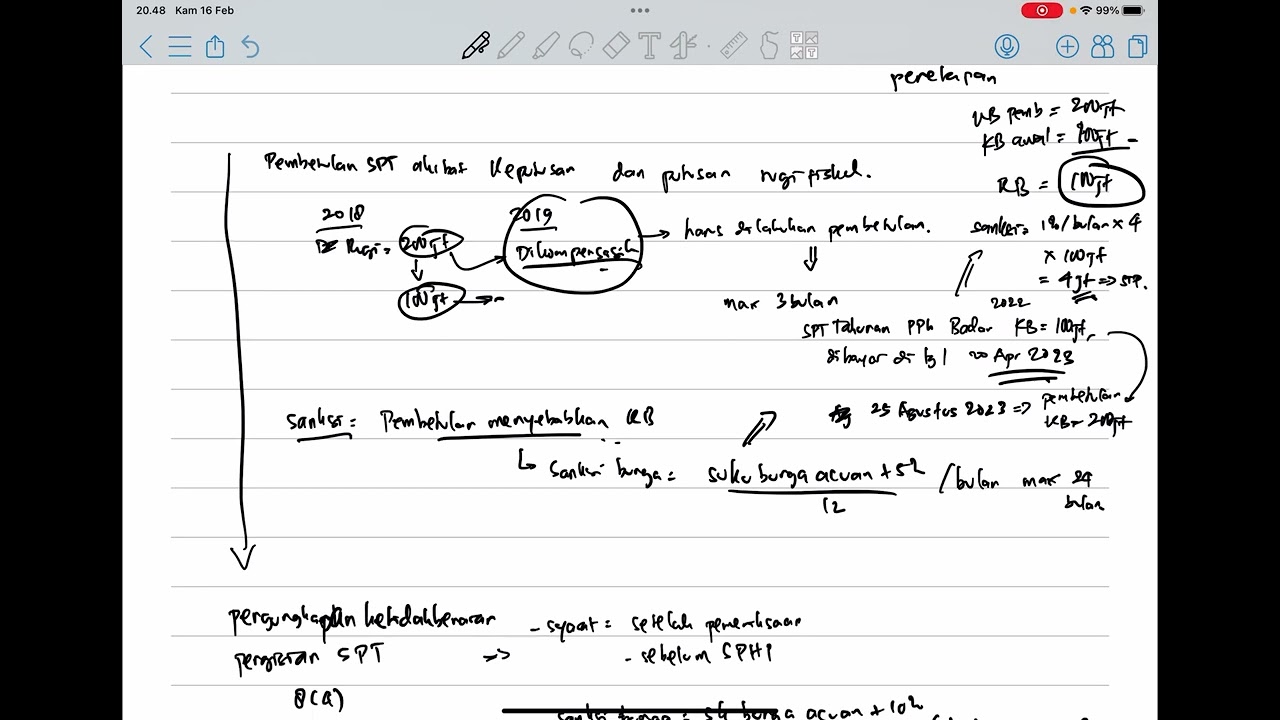 20.48 Kam 16 Feb
99%
penetapan
KB pemb = 200jt
KB awal = 100jt -
KB = 100jt
Pembetulan SPT akibat keputusan dan putusan rugi fiskal.
2018
Rugi = 200jt
100jt
2019
Dikompensasik
harus dilakukan pembetulan.
max 3 bulan
sanksi = 1%/bulan x 4
x 100jt
= 4jt => STP.
2022
SPT Tahunan PPh Badan KB = 100jt,
dibayar di tgl 20 Apr 2023
25 Agustus 2023 => pembetulan
KB = 200jt
Sanksi = Pembetulan menyebabkan KB
Sanksi bunga = suku bunga acuan + 5% /bulan max 24
12
bulan
pengungkapan ketidakbenaran
pengisian SPT
8(4)
- syarat = setelah pemeriksaan
- sebelum SPHP
sanksi bunga = suku bunga acuan + 10%